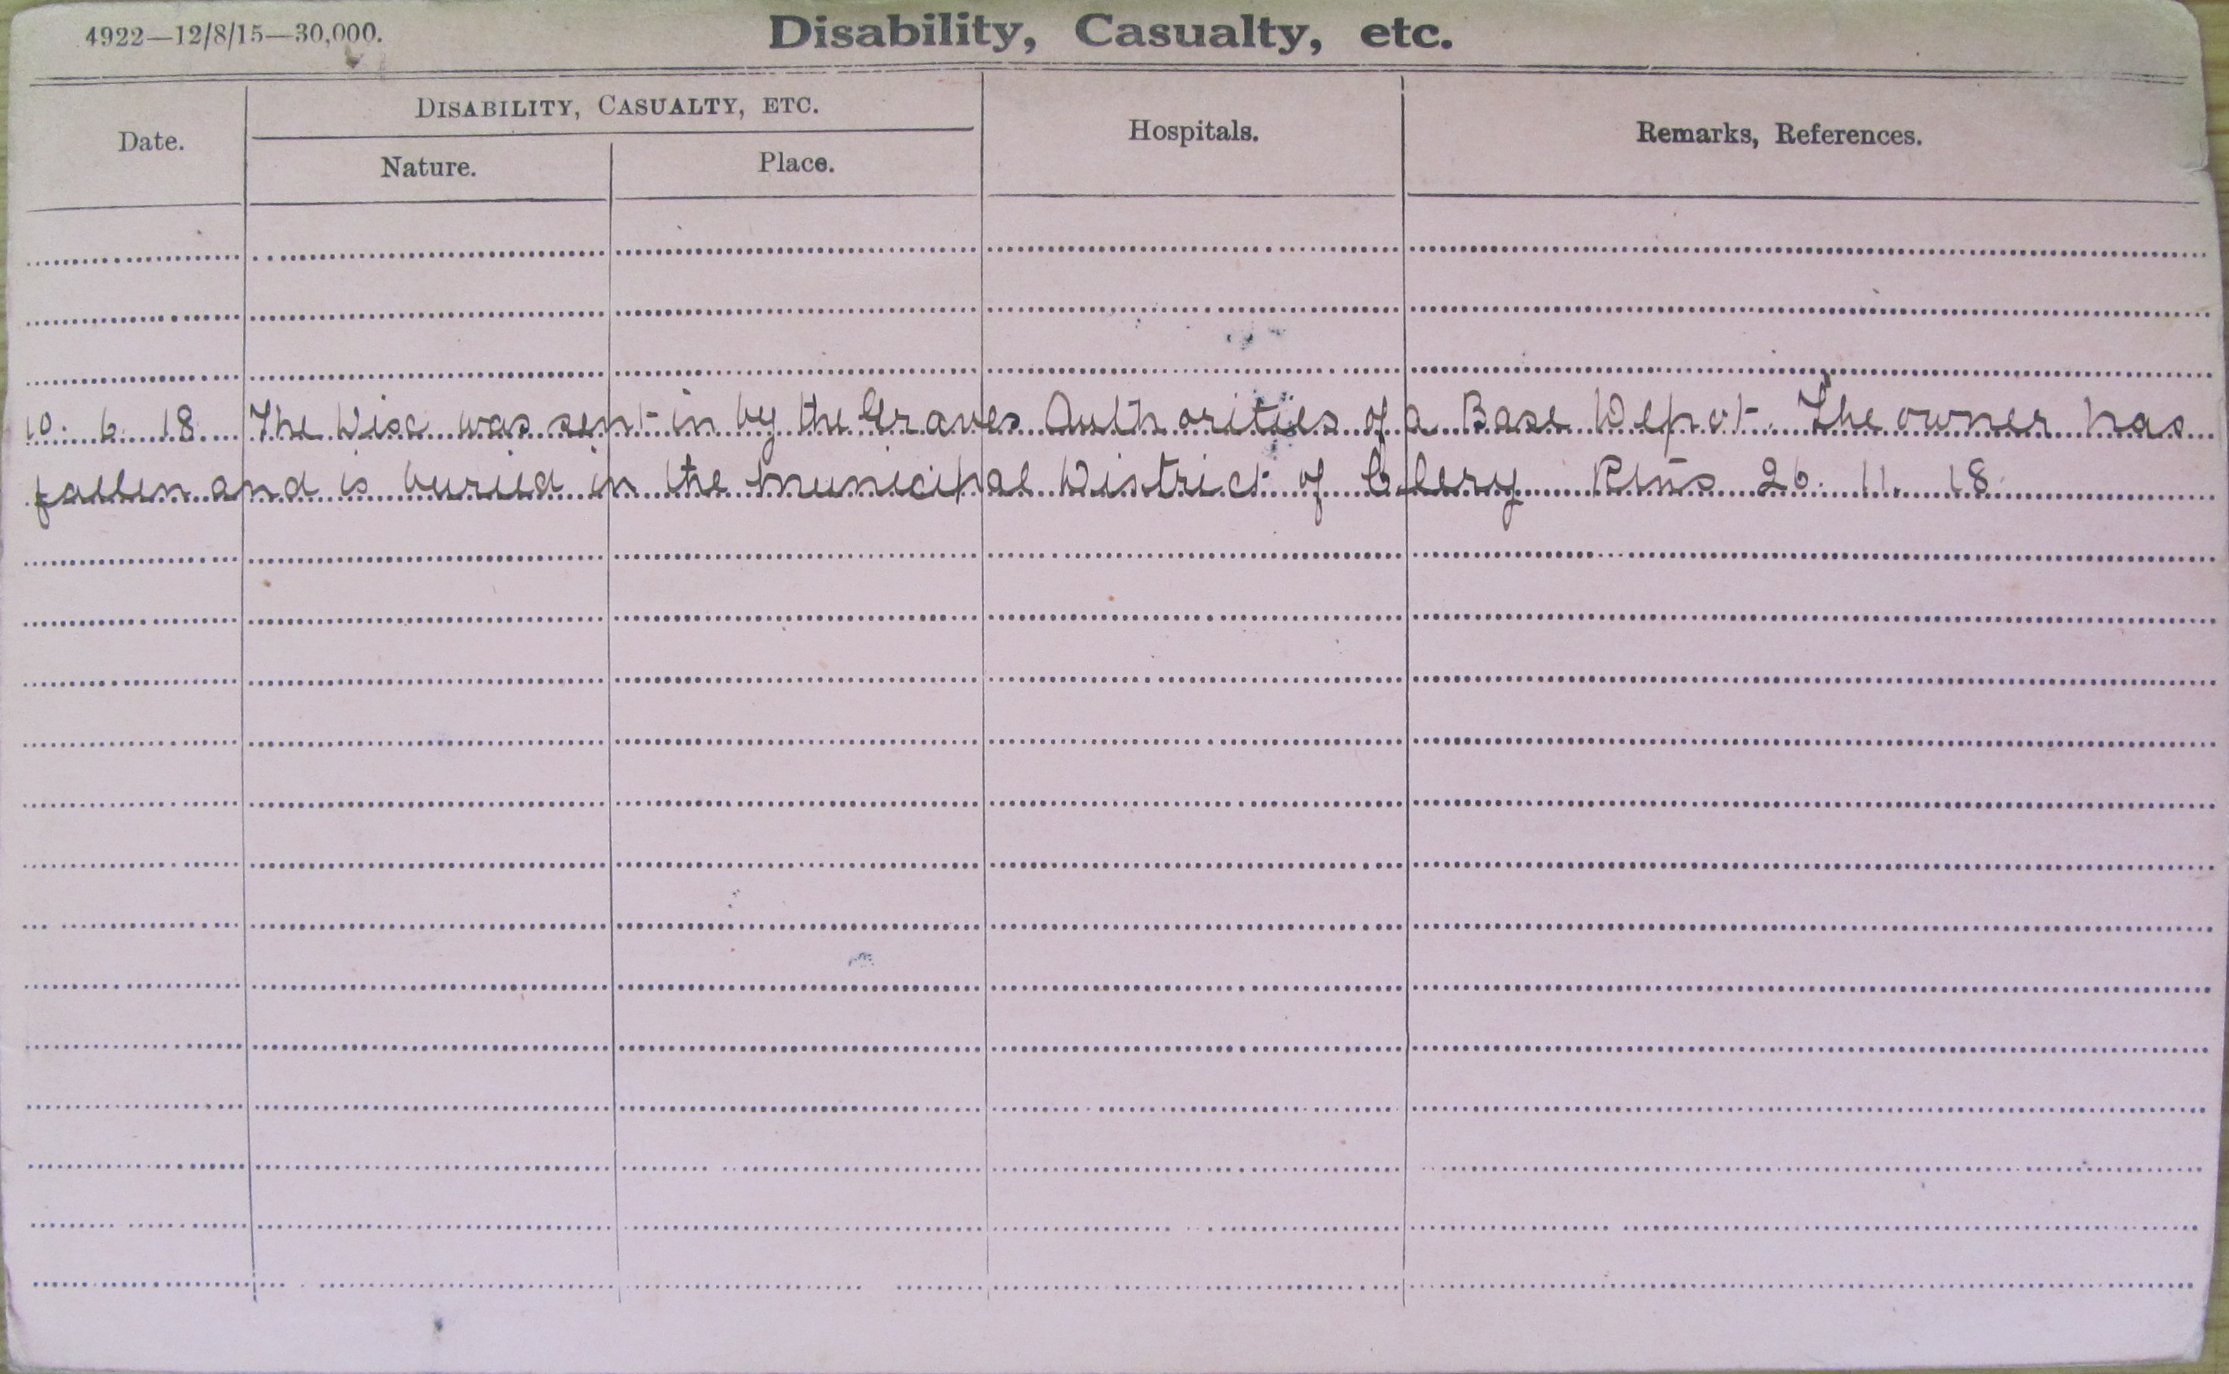 4922—12/8/15—30,000.
Disability, Casualty, etc.
Date.
DISABILITY, CASUALTY, ETC.
Nature.
Place.
Hospitals.
Remarks, References.
10. 6. 18. The Disc was sent in by the Graves Authorities of a Base Depot. The owner has
fallen and is buried in the municipal District of Clery 26. 11. 18.